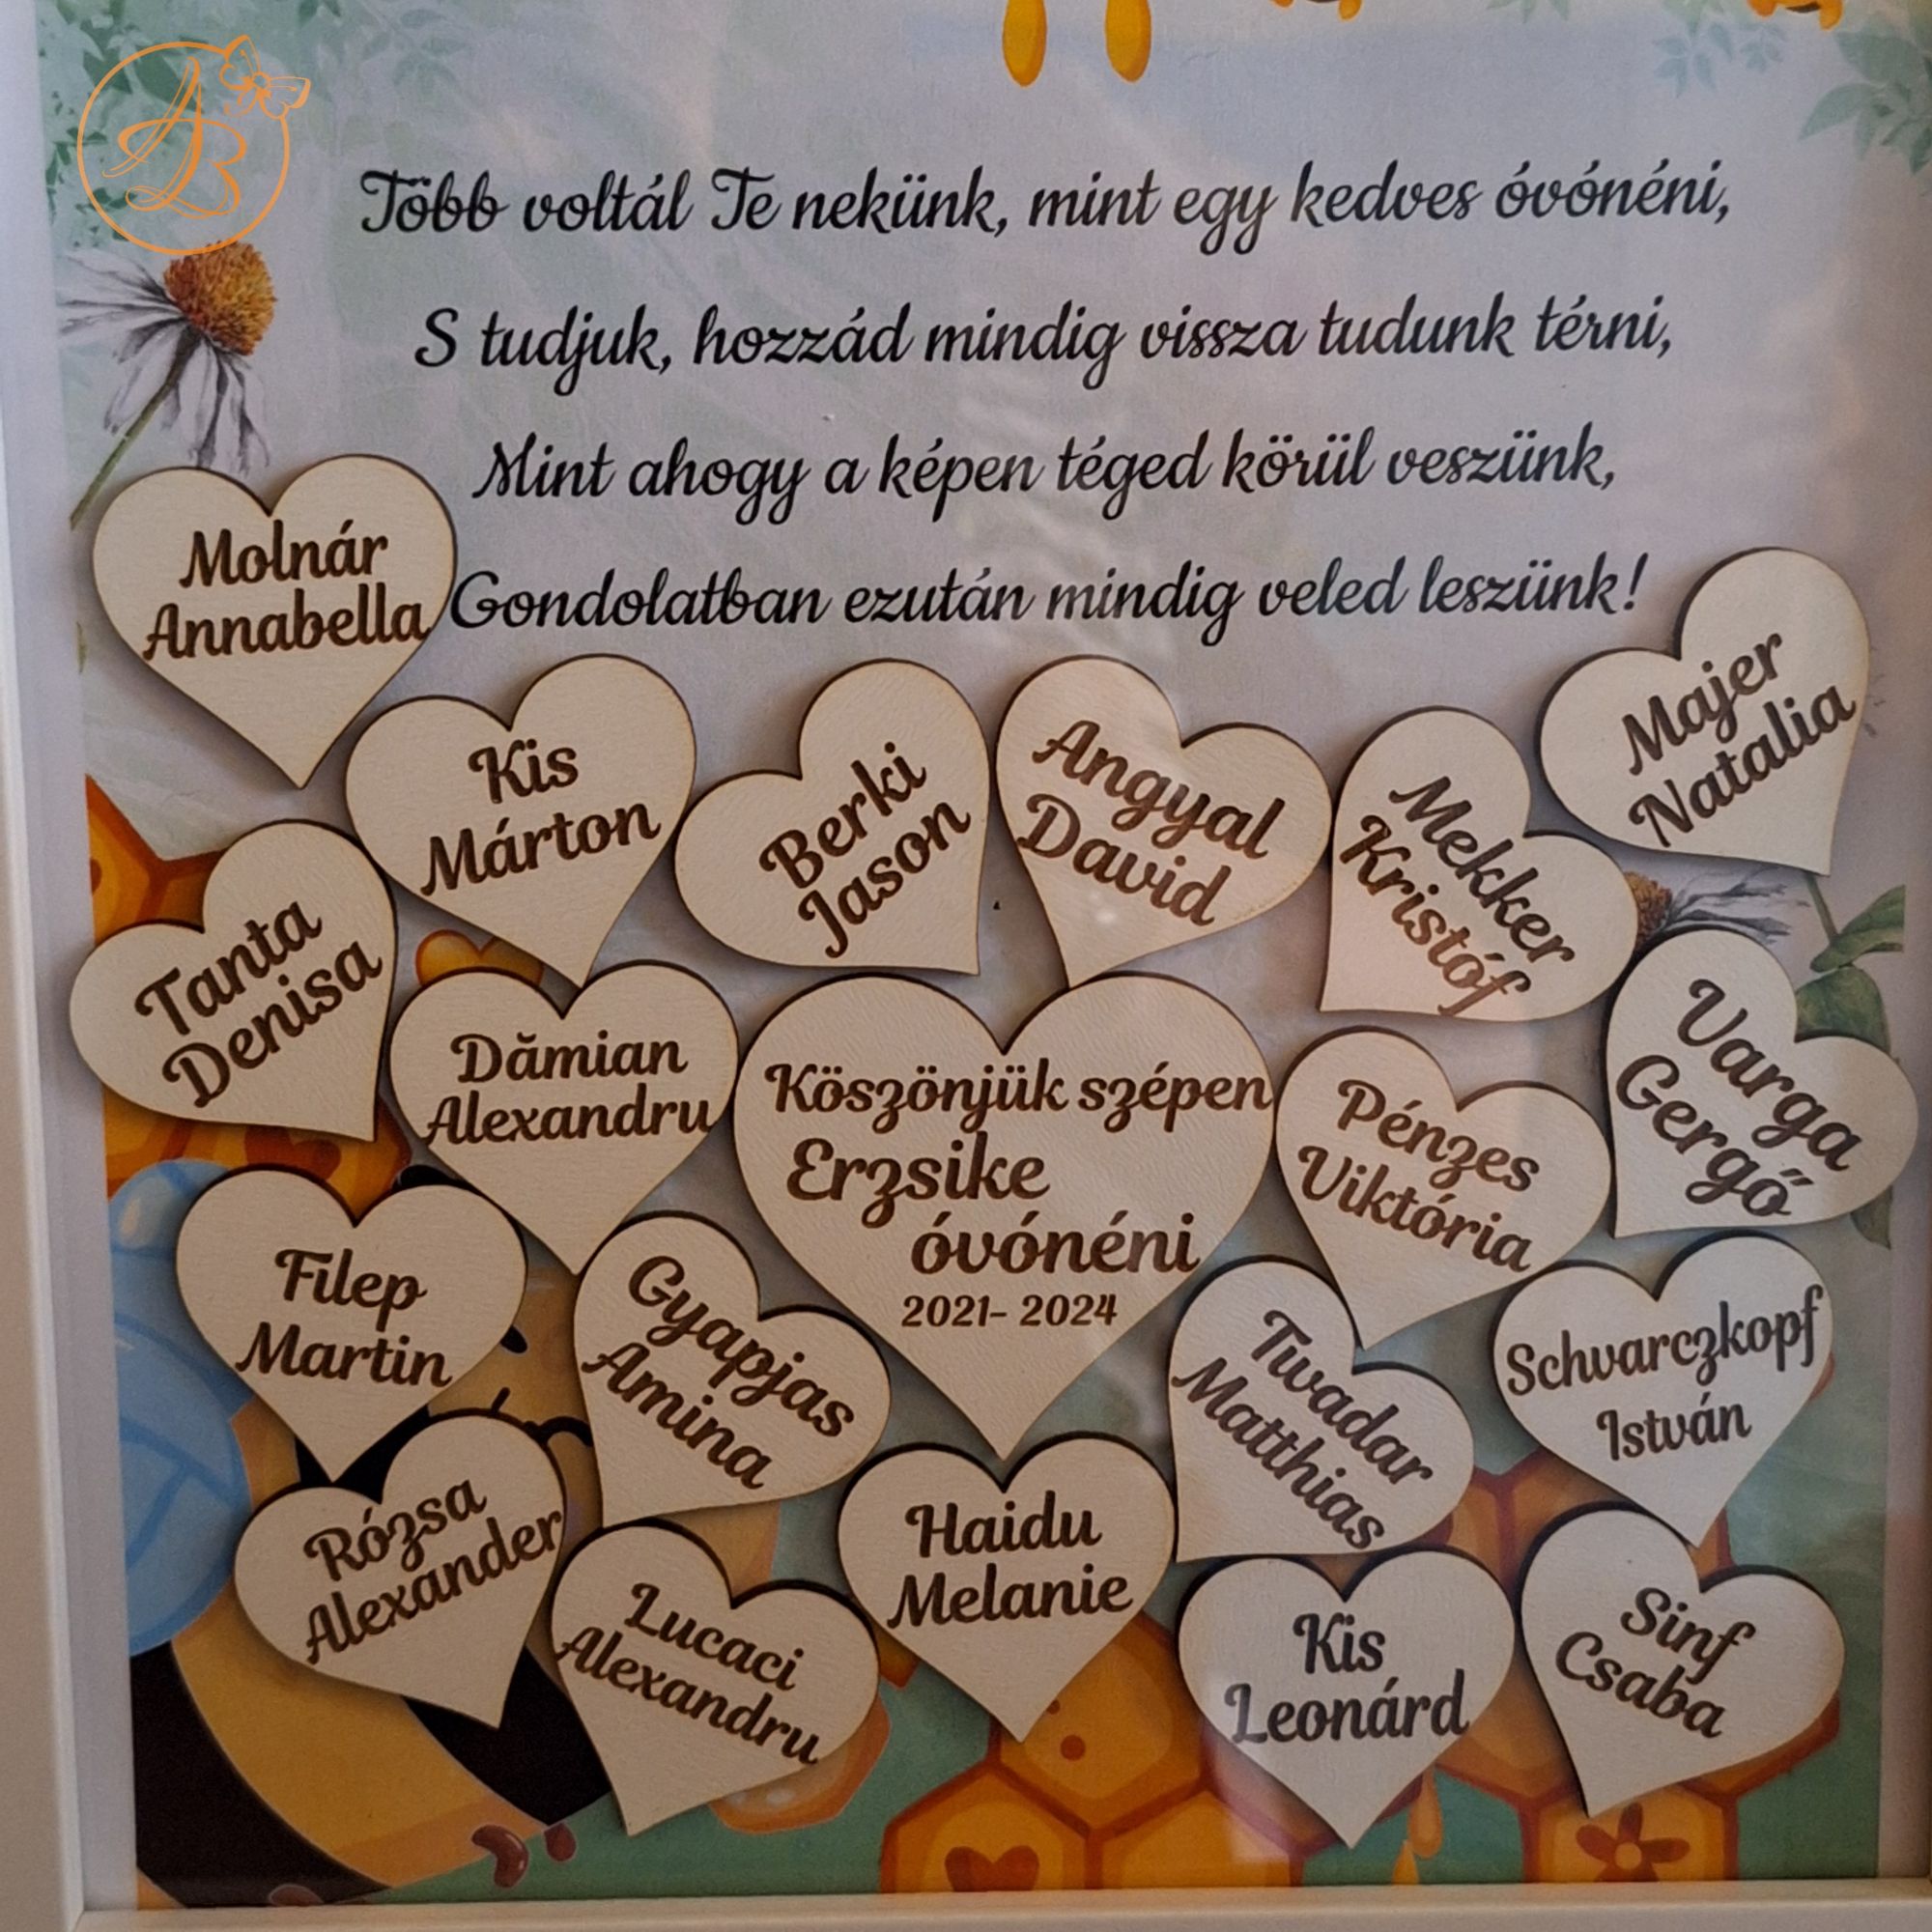 AB
Több voltál Te nekünk, mint egy kedves óvónéni,
S tudjuk, hozzád mindig vissza tudunk térni,
Mint ahogy a képen téged körül veszünk,
Gondolatban ezután mindig veled leszünk!
Molnár
Annabella
Majer
Natalia
Kis
Márton
Berki
Jason
Angyal
David
Mekker
Kristóf
Tanta
Denisa
Dămian
Alexandru
Köszönjük szépen
Erzsike
óvónéni
2021- 2024
Pénzes
Viktória
Varga
Gergő
Filep
Martin
Gyapjas
Amina
Twadar
Matthias
Schvarczkopf
István
Rózsa
Alexander
Lucaci
Alexandru
Haidu
Melanie
Kis
Leonárd
Sinf
Csaba